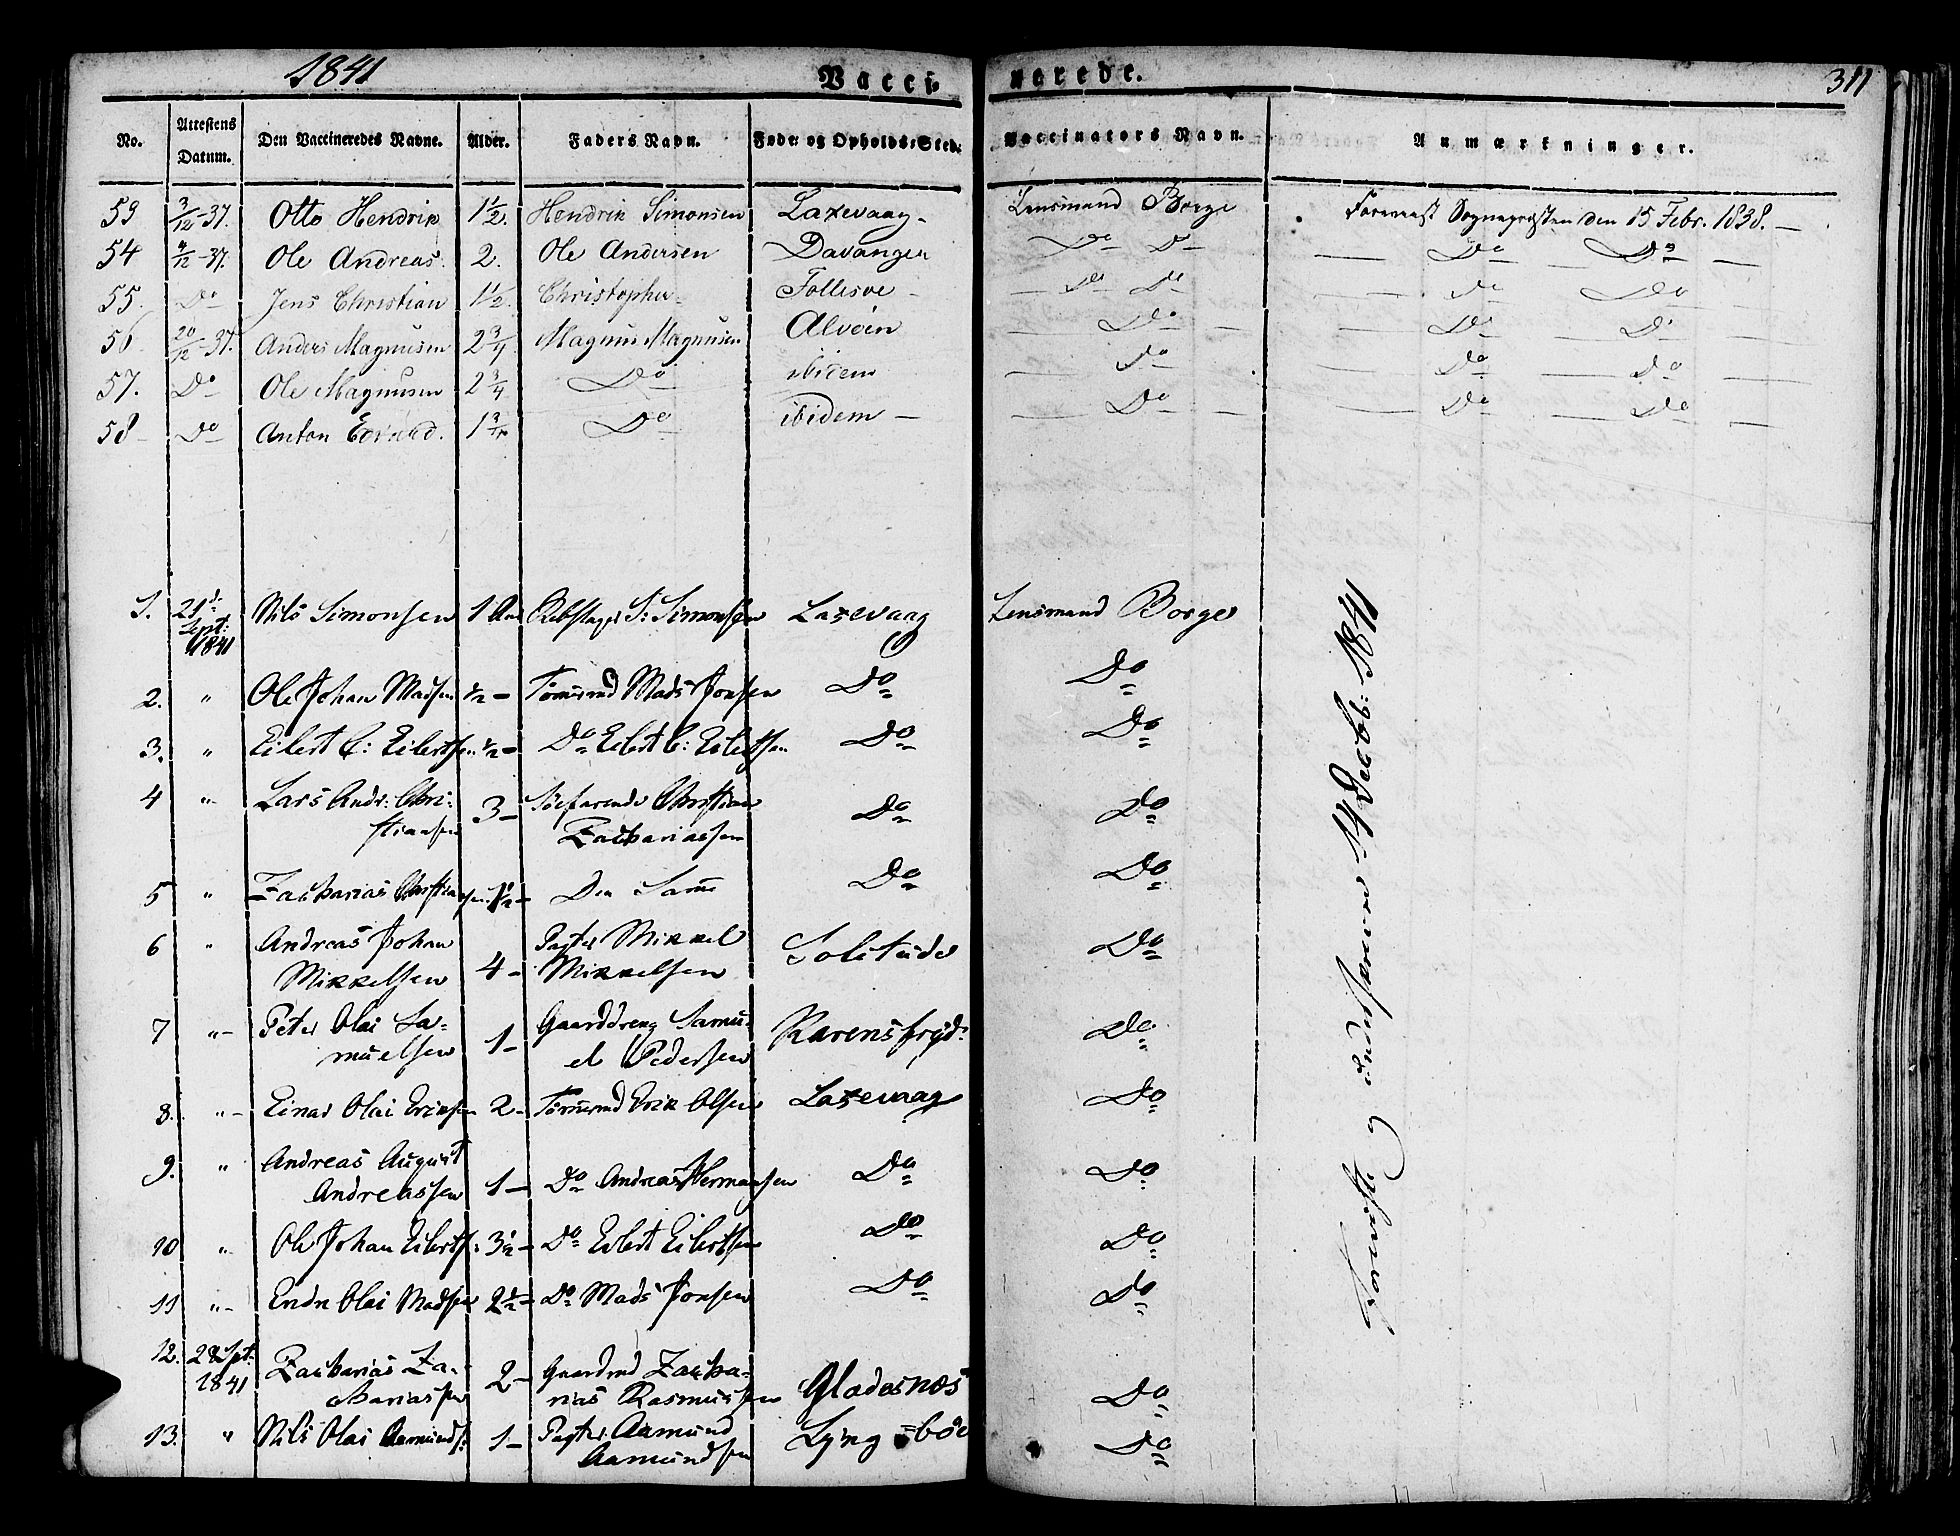 1841 Vacci-nerede. 311
No. Attestens Datum. Den Vaccineredes Navne. Alder. Faders Navn. Føde- og Opholds-Sted. Vaccinators Navn. Anmærkninger.
53 3/12-37. Otto Hendrik 1 1/2. Hendrik Simonsen Laxevaag- Lensmand Borge Foreviist Sognepræsten den 15 Febr. 1838. —
54 4/12-37. Ole Andreas. 2. Ole Andersen Davanger Do Do — Do — Do —
55. Do Jens Christian 1 1/2. Christopher Follesøe - — Do Do — Do Do —
56 20/12-37. Anders Magnusen 2 3/4 Magnus Magnusen Alvøen — Do — — Do Do —
57. Do Ole Magnusen 2 3/4 Do ibidem — Do — Do Do —
58 - Do Anton 1 3/4 Do ibidem — — Do — — Do — Do —
1. 21d. Sept: 1841 Nils Simonsen 1 Aar Rebslager S: Simonsen Laxevaag Lensmand Borge
2. " Ole Johan Madsen 1/2 - Tømmrmd Mads Jonsen Do Do
3. " Eilert C: Eilertsen 1/2 - Do Eilert C: Eilertsen Do Do
4 " Lars Andr: Chri-
stiansen 3 - Søefarende Christian
Zachariassen Do Do
5 " Zacharias Christiansen 1 1/2 - Den Samme Do Do
6 " Andreas Johan
Mikkelsen 4 - Pagter Mikkel
Mikkelsen Solitude Do
7 " - Peter Olai Sa-
muelsen 1 - Gaarddreng Samu-
el Pedersen Karensfryd: Do
8. " - Einar Olai Eriksen 2 - Tømmrmd Erik Olsen Laxevaag Do
9. " Andreas August
Andreassen 1 - Do Andreas Hermansen Do Do
10 " Ole Johan Eilerts: 3 1/2 - Do Eilert Eilertsen Do Do
11 " - Endre Olai Madsen 2 1/2 - Do Mads Jonsen Do Do
12. 28 Spt: 1841 Zacharias Za-
chariassen 2 - Gaardmd Zacha-
rias Rasmussen Gladesnæs Do
13. " Nils Olai Aamunds: 1 - Pagter Aamund
Aamundsen Lyng-bøe Do
Foreviste og indførte 14 Decbb: 1841